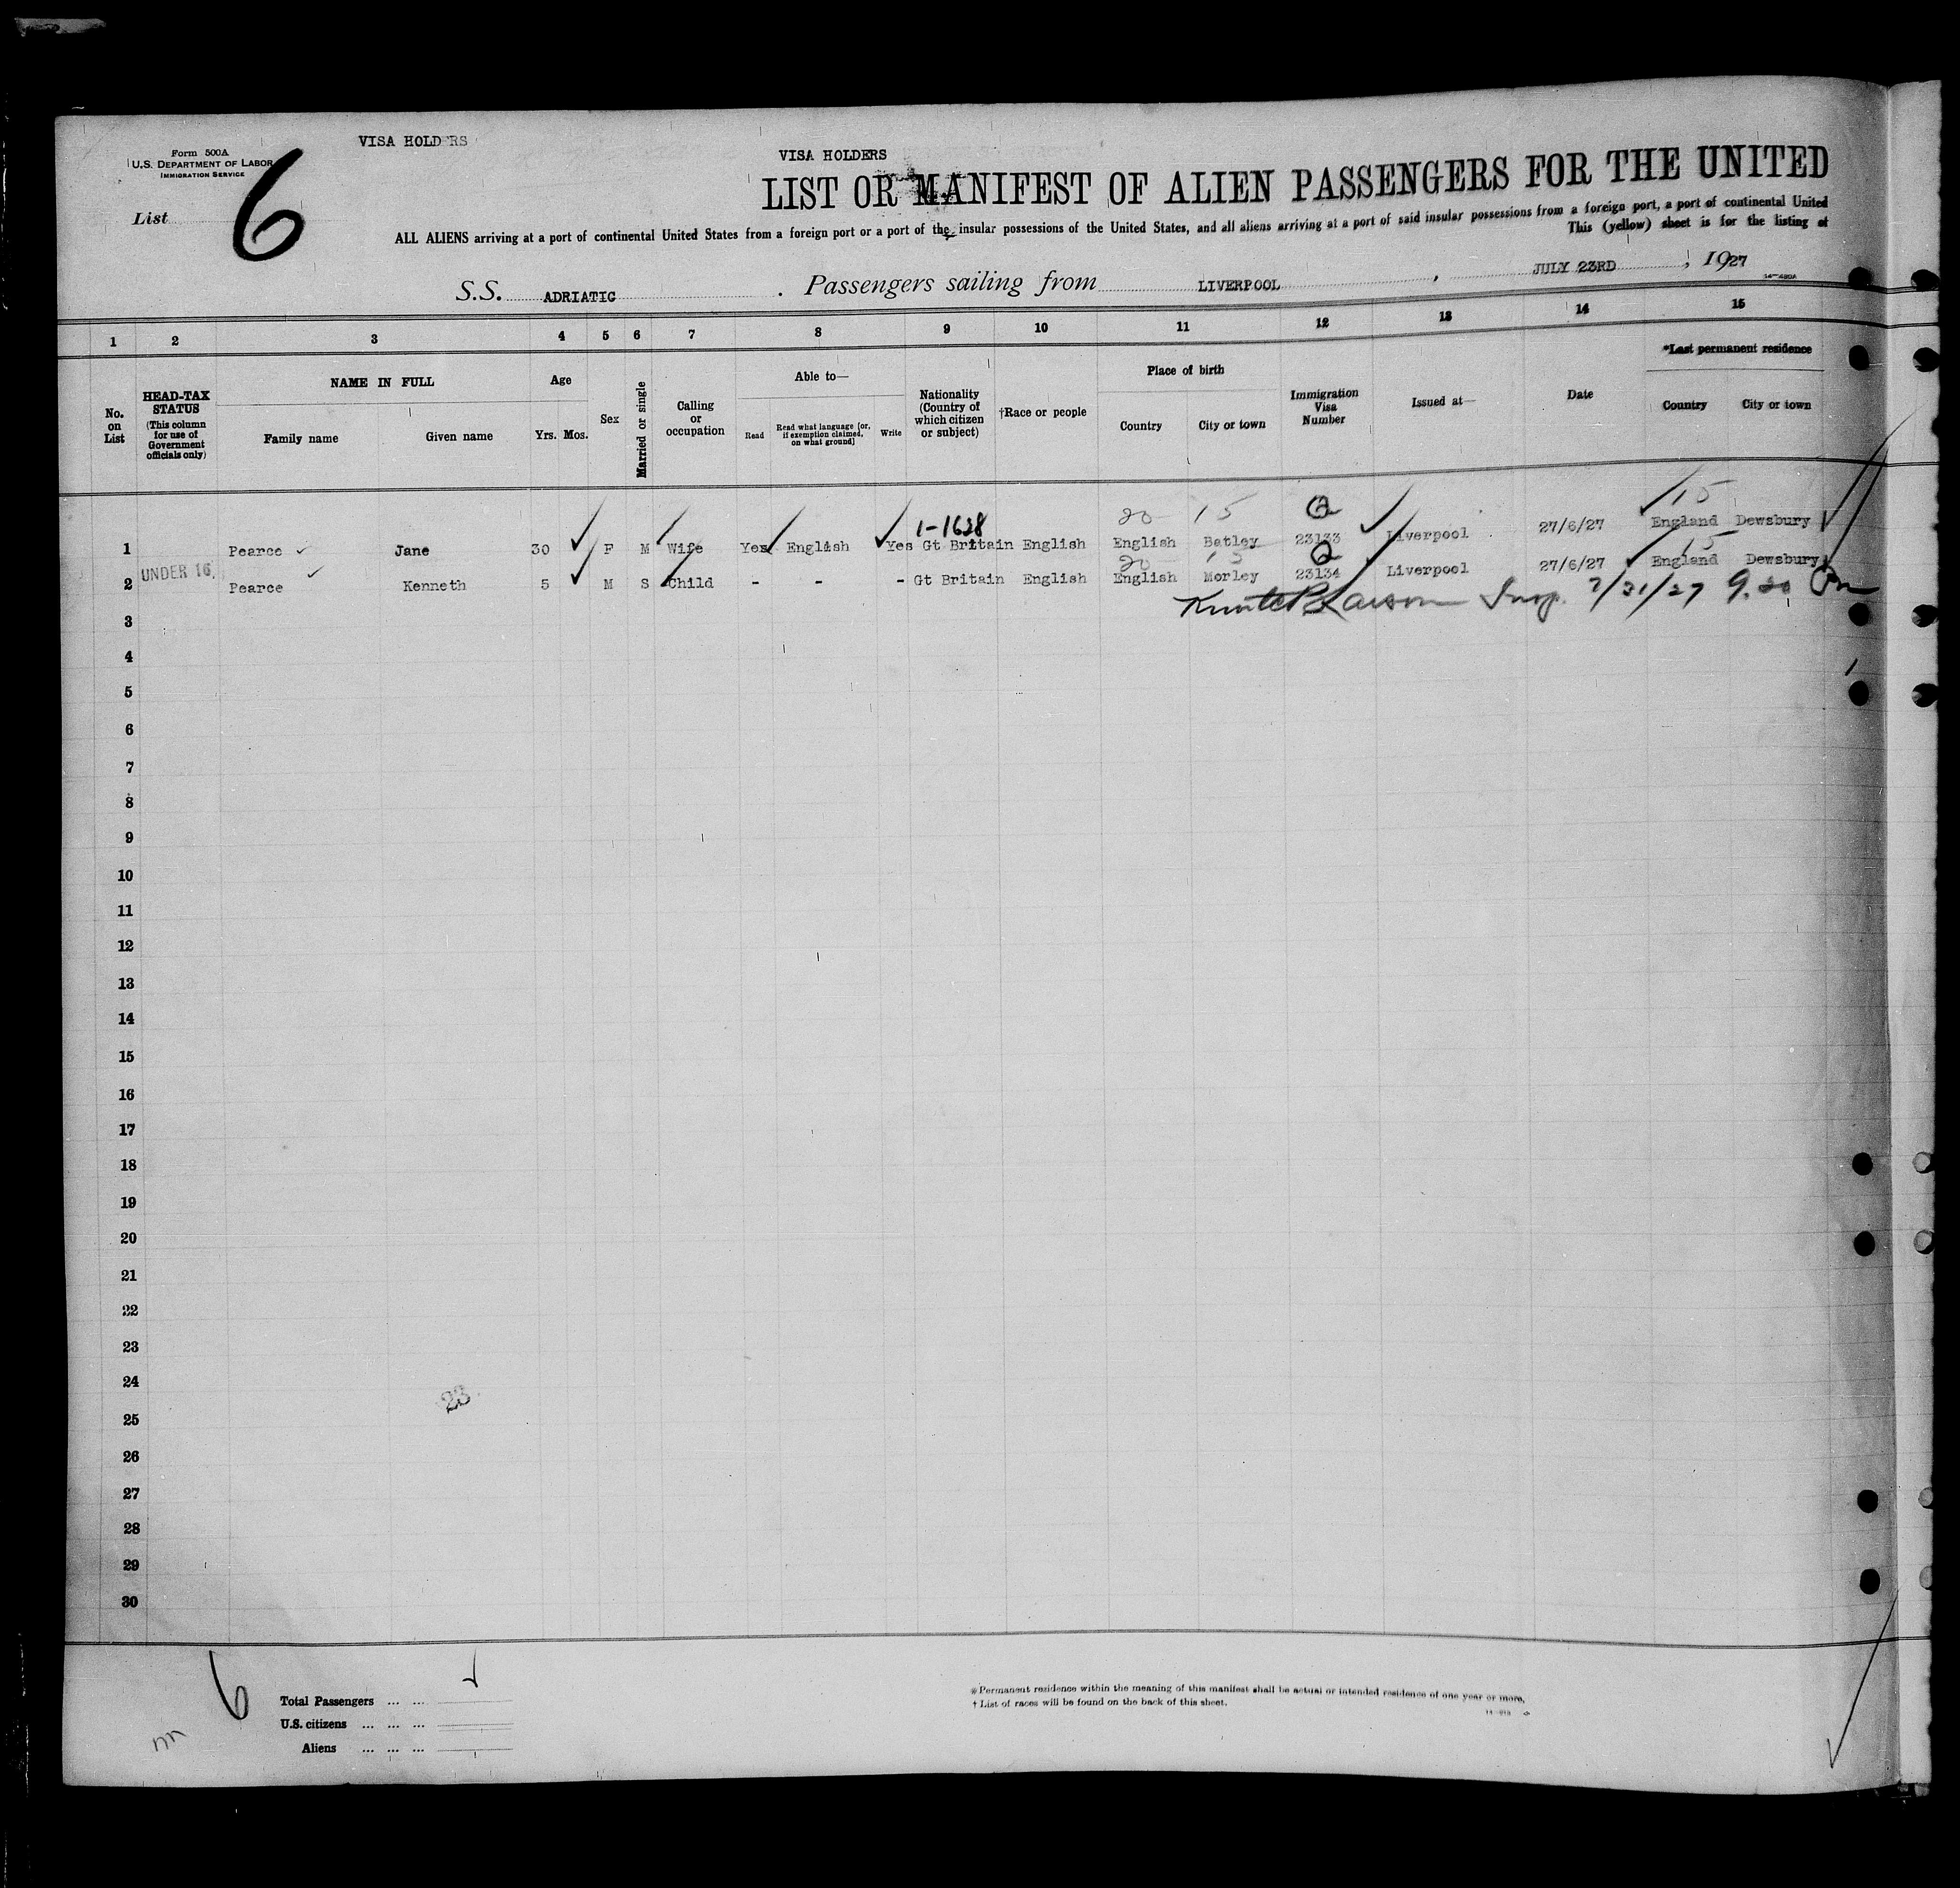 Form 500A
U.S. DEPARTMENT OF LABOR
IMMIGRATION SERVICE
VISA HOLDERS
VISA HOLDERS
List 6
LIST OR MANIFEST OF ALIEN PASSENGERS FOR THE UNITED
ALL ALIENS arriving at a port of continental United States from a foreign port or a port of the insular possessions of the United States, and all aliens arriving at a port of said insular possessions from a foreign port, a port of continental United
This (yellow) sheet is for the listing of
S.S. ADRIATIC . Passengers sailing from LIVERPOOL , JULY 23RD , 1927
1 2 3 4 5 6 7 8 9 10 11 12 13 14 15
No. on List
HEAD-TAX STATUS (This column for use of Government officials only)
NAME IN FULL
Family name Given name
Age
Yrs. Mos.
Sex
Married or single
Calling or occupation
Able to—
Read Read what language [or, if exemption claimed, on what ground] Write
Nationality (Country of which citizen or subject)
†Race or people
Place of birth
Country City or town
Immigration Visa Number
Issued at—
Date
*Last permanent residence
Country City or town
1-1628 20 15 Q 15
1 Pearce Jane 30 F M Wife Yes English Yes Gt Britain English English Batley 23133 Liverpool 27/6/27 England Dewsbury
20 15 Q 15
2 UNDER 16. Pearce Kenneth 5 M S Child - - - Gt Britain English English Morley 23134 Liverpool 27/6/27 England Dewsbury
Larson Insp. 7/31/27 9.20
3
4
5
6
7
8
9
10
11
12
13
14
15
16
17
18
19
20
21
22
23
24
23
25
26
27
28
29
30
6
Total Passengers ... ...
U.S. citizens ... ... ...
Aliens ... ... ...
*Permanent residence within the meaning of this manifest shall be actual or intended residence of one year or more.
† List of races will be found on the back of this sheet.